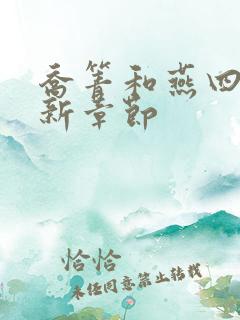 乔箐和燕四
新章节
恰恰
未经同意禁止转载